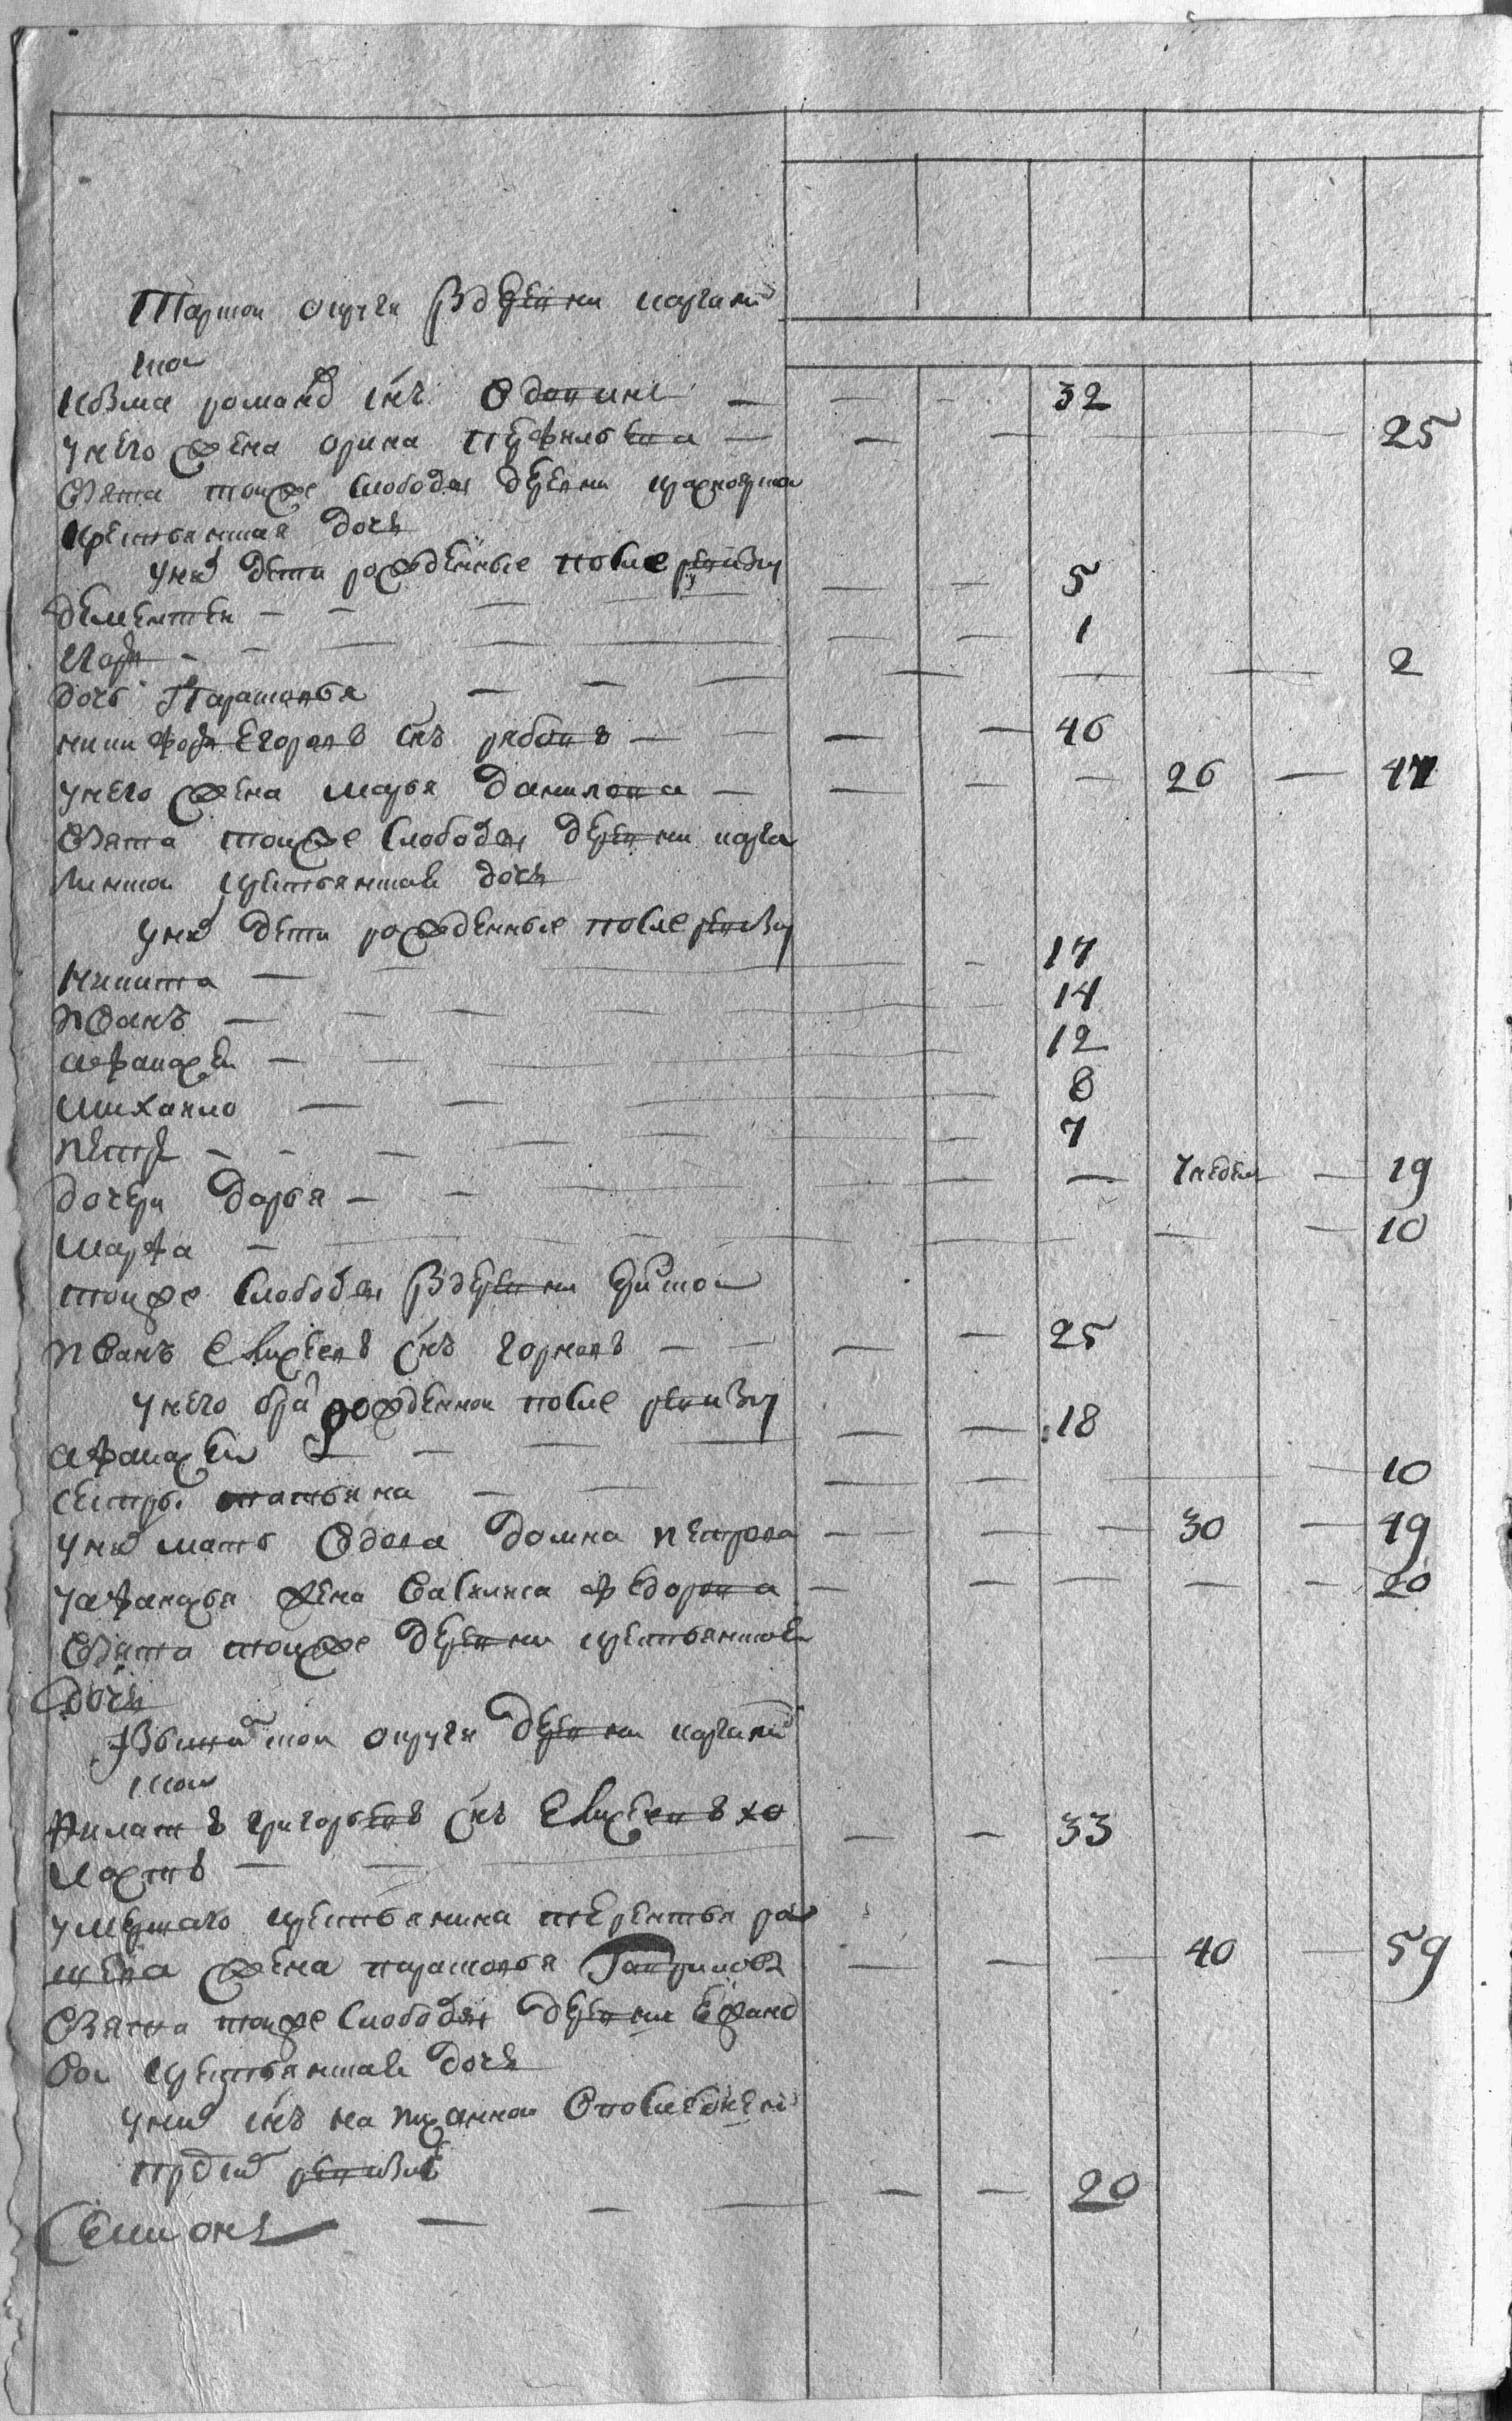 Тарской округи в деревни
Козма романов снъ — — — 32
у него жена орина — — — 25
взята тоиже слободы деревни
крестьянская дочь
у них дети рожденные после ревизи
дементеи — — — 5
— — — 1
дочь Парасковья — — — 2
никифор Егоров снъ рябовъ — — — 46
у него жена марья данилова — — — 26 — 47
взята тоиже слободы деревни
крестьянская дочь
у них дети рожденные после ревизи
никита — — — 17
иванъ — — — 14
афанасеи — — — 12
михаило — — — 8
петръ — — — 7
дочери дарья — — — 7 недель — 19
марфа — — — 10
тоиже слободы в деревни
иванъ снъ — — — 25
у него брат рожденнои после ревизи
афанасеи — — — 18
сестра татьяна — — — 10
у них мать вдова домна петрова — — — 30 — 49
у афанасья жена василиса федорова — — — 20
взята тоиже деревни крестьянская
дочь
округи деревни
филатъ григорьевъ снъ Елисеевъ хо
лостъ — — — 33
умершаго крестьянина терентья
жена парасковья Гаврилова — — — 40 — 59
взята тоиже слободы деревни
вои крестьянская дочь
у них снъ написаннои в последнеи
пред сим ревизии
Семионъ — — — 20